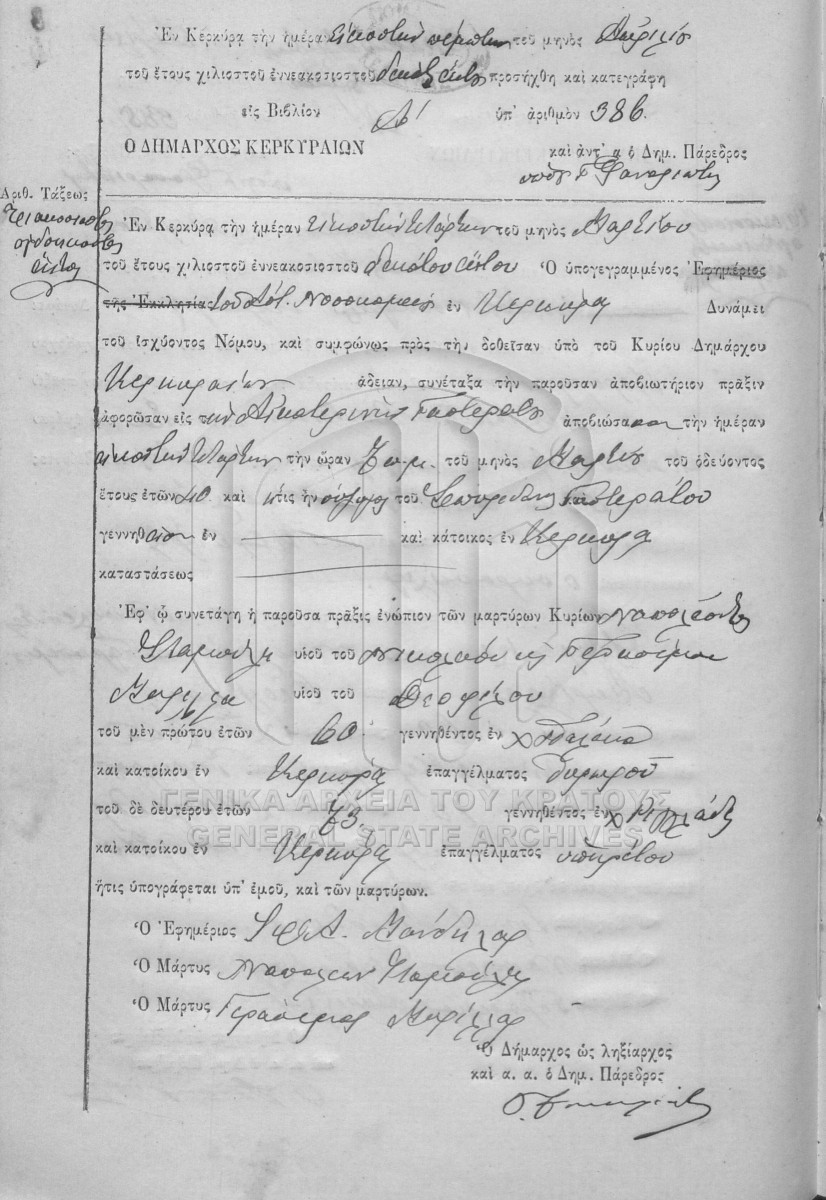 Ἐν Κερκύρᾳ τὴν ἡμέραν εἰκοστὴν πέμπτην τοῦ μηνὸς Ἀπριλίου
τοῦ ἔτους χιλιοστοῦ ἐννεακοσιοστοῦ δεκάτου ἕκτου προσήχθη καὶ κατεγράφη
εἰς Βιβλίον Α' ὑπ' ἀριθμὸν 386.
Ο ΔΗΜΑΡΧΟΣ ΚΕΡΚΥΡΑΙΩΝ καὶ ἀντ' α ὁ Δημ. Πάρεδρος
Ἀριθ. Τάξεως
τριακοσιοστὸς
ὀγδοηκοστὸς
ἕκτος
Ἐν Κερκύρᾳ τὴν ἡμέραν εἰκοστὴν τετάρτην τοῦ μηνὸς Μαρτίου
τοῦ ἔτους χιλιοστοῦ ἐννεακοσιοστοῦ δεκάτου ἕκτου Ὁ ὑπογεγραμμένος Ἐφημέριος
τῆς Ἐκκλησίας τοῦ Νοσοκομείου ἐν Κερκύρᾳ Δυνάμει
τοῦ ἰσχύοντος Νόμου, καὶ συμφώνως πρὸς τὴν δοθεῖσαν ὑπὸ τοῦ Κυρίου Δημάρχου
Κερκυραίων ἄδειαν, συνέταξα τὴν παροῦσαν ἀποβιωτήριον πρᾶξιν
ἀφορῶσαν εἰς τὴν Αἰκατερίνην Γαστεράτου ἀποβιώσασαν τὴν ἡμέραν
εἰκοστὴν τετάρτην τὴν ὥραν 7 π.μ. τοῦ μηνὸς Μαρτίου τοῦ ὁδεύοντος
ἔτους ἐτῶν 40 καὶ ἥτις ἦν σύζυγος τοῦ Σπυρίδωνος Γαστεράτου
γεννηθεῖσαν ἐν καὶ κάτοικος ἐν Κερκύρᾳ
καταστάσεως
Ἐφ' ᾧ συνετάγη ἡ παροῦσα πρᾶξις ἐνώπιον τῶν μαρτύρων Κυρίων Ναπολέοντος
Σταμούλη υἱοῦ τοῦ Νικολάου κ Γερασίμου
Μωρίλλα υἱοῦ τοῦ Θεοφίλου
τοῦ μὲν πρώτου ἐτῶν 60 γεννηθέντος ἐν
καὶ κατοίκου ἐν Κερκύρᾳ ἐπαγγέλματος
τοῦ δὲ δευτέρου ἐτῶν 73 γεννηθέντος ἐν
καὶ κατοίκου ἐν Κερκύρᾳ ἐπαγγέλματος ὑπηρέτου
ἥτις ὑπογράφεται ὑπ' ἐμοῦ, καὶ τῶν μαρτύρων.
Ὁ Ἐφημέριος
Ὁ Μάρτυς Ναπολέων Σταμούλης
Ὁ Μάρτυς Γεράσιμος Μωρίλλας
Ὁ Δήμαρχος ὡς ληξίαρχος
καὶ α. α. ὁ Δημ. Πάρεδρος
ΓΕΝΙΚΑ ΑΡΧΕΙΑ ΤΟΥ ΚΡΑΤΟΥΣ
GENERAL STATE ARCHIVES